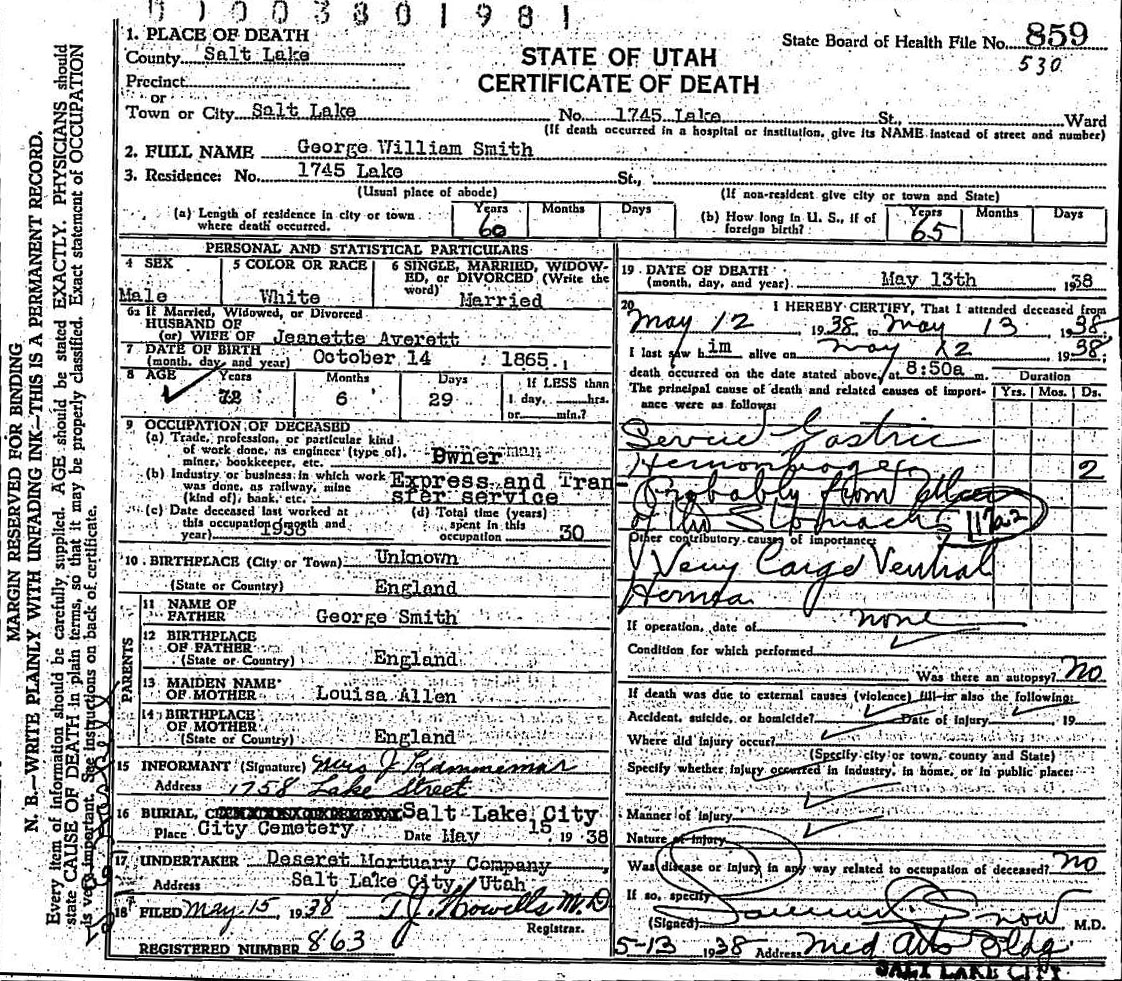 003801981
1. PLACE OF DEATH
County Salt Lake
Precinct
or
Town or City Salt Lake No. 1745 Lake St., Ward
(If death occurred in a hospital or institution, give its NAME instead of street and number)
STATE OF UTAH
CERTIFICATE OF DEATH
State Board of Health File No. 859
530
2. FULL NAME George William Smith
3. Residence: No. 1745 Lake St.,
(Usual place of abode) (If non-resident give city or town and State)
(a) Length of residence in city or town where death occurred. Years 60 Months Days
(b) How long in U. S., if of foreign birth? Years 65 Months Days
PERSONAL AND STATISTICAL PARTICULARS
4 SEX Male
5 COLOR OR RACE White
6 SINGLE, MARRIED, WIDOWED, or DIVORCED (Write the word) Married
6a If Married, Widowed, or Divorced
HUSBAND OF
(or) WIFE OF Jeanette Averett
7 DATE OF BIRTH
(month, day, and year) October 14 1865
8 AGE Years 72 Months 6 Days 29 If LESS than 1 day, hrs. or min.?
9 OCCUPATION OF DECEASED
(a) Trade, profession, or particular kind
of work done, as engineer (type of),
miner, bookkeeper, etc. Owner
(b) Industry or business in which work
was done, as railway, mine
(kind of), bank, etc. Express and Transfer service
(c) Date deceased last worked at
this occupation (month and
year) 1938
(d) Total time (years)
spent in this
occupation 30
10 BIRTHPLACE (City or Town) Unknown
(State or Country) England
PARENTS
11 NAME OF
FATHER George Smith
12 BIRTHPLACE
OF FATHER
(State or Country) England
13 MAIDEN NAME
OF MOTHER Louisa Allen
14 BIRTHPLACE
OF MOTHER
(State or Country) England
15 INFORMANT (Signature) Mrs J
Address 1758 Lake Street
16 BURIAL, Salt Lake City
Place City Cemetery Date May 15 1938
17 UNDERTAKER Deseret Mortuary Company
Address Salt Lake City, Utah
18 FILED May 15, 1938 T J Howells M.D
Registrar.
REGISTERED NUMBER 863
19 DATE OF DEATH
(month, day, and year) May 13th 1938
20 I HEREBY CERTIFY, That I attended deceased from
May 12 1938 to May 13 1938
I last saw him alive on May 12 1938;
death occurred on the date stated above, at 8:50a m. Duration
The principal cause of death and related causes of importance were as follows: Yrs. Mos. Ds.
Gastric
Hemorrhage 2
Probably from Ulcer
of the Stomach 117a2
Other contributory causes of importance:
Very Large Ventral
Hernia
If operation, date of none
Condition for which performed
Was there an autopsy? No
If death was due to external causes (violence) fill in also the following:
Accident, suicide, or homicide? Date of injury 19
Where did injury occur?
(Specify city or town, county and State)
Specify whether injury occurred in industry, in home, or in public place:
Manner of injury
Nature of injury
Was disease or injury in any way related to occupation of deceased? No
If so, specify
(Signed) Snow M.D.
5-13 1938 Address Med Arts Bldg.
SALT LAKE CITY
MARGIN RESERVED FOR BINDING
N. B.—WRITE PLAINLY WITH UNFADING INK—THIS IS A PERMANENT RECORD.
Every item of information should be carefully supplied. AGE should be stated EXACTLY. PHYSICIANS should
state CAUSE OF DEATH in plain terms, so that it may be properly classified. Exact statement of OCCUPATION
is very important. See instructions on back of certificate.